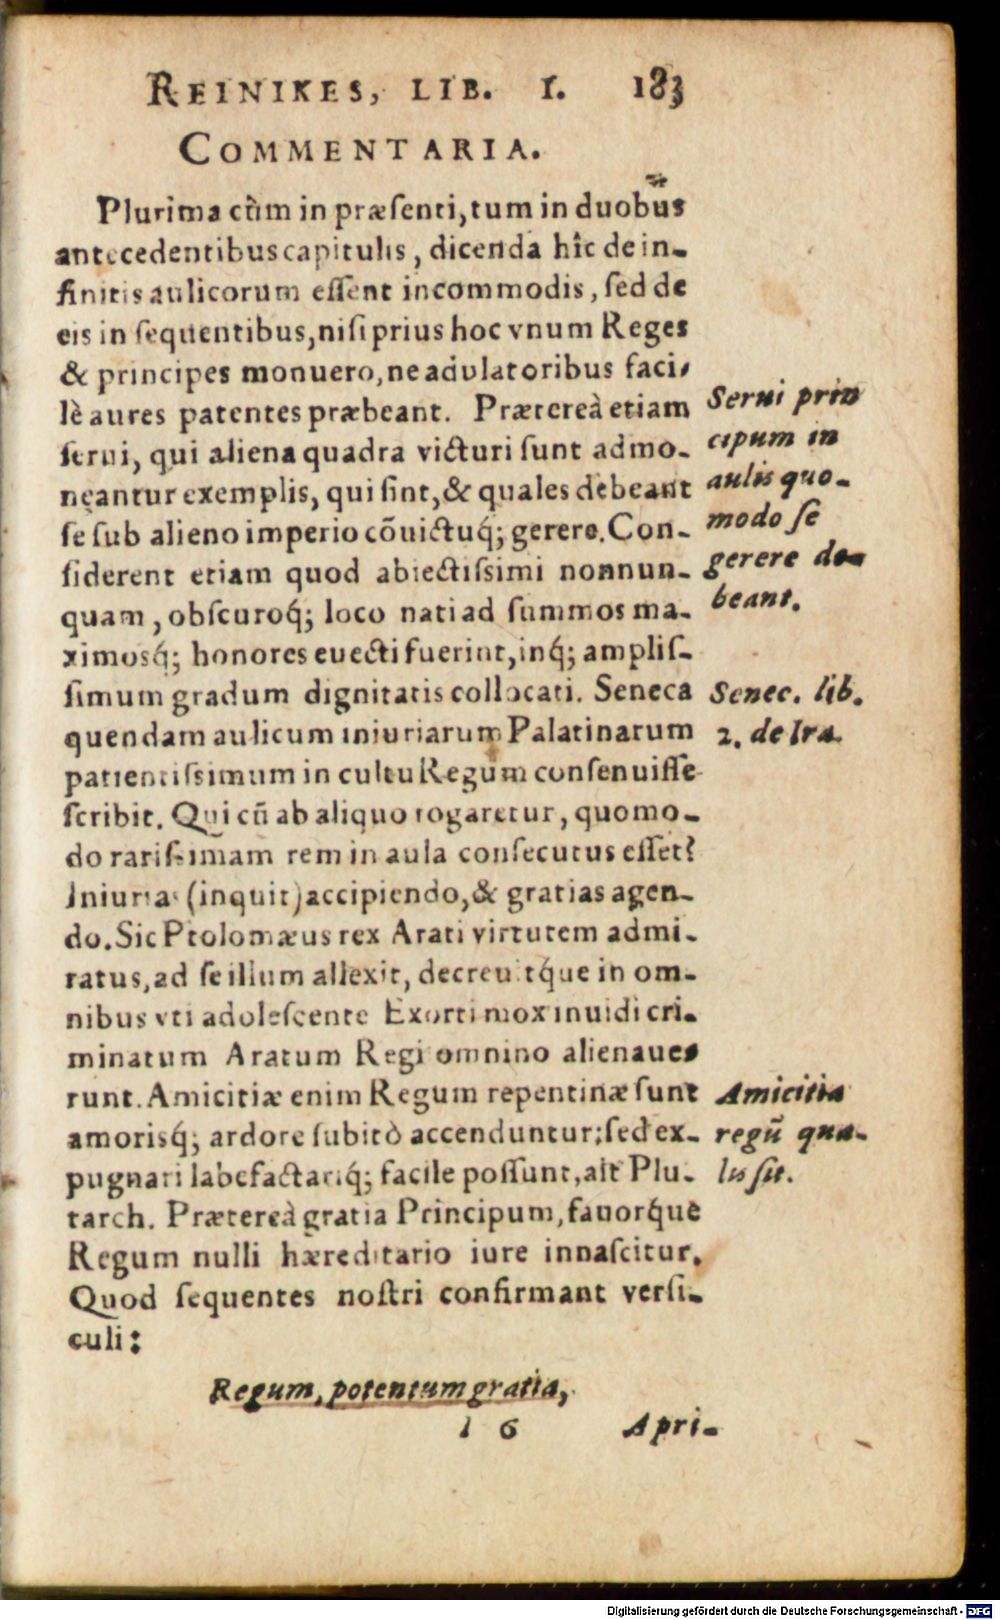 REINIKES, LIB. I. 183
COMMENTARIA.
Plurima cùm in præſenti, tum in duobus
antecedentibus capitulis, dicenda hîc de in-
finitis aulicorum eſſent incommodis, ſed de
eis in ſequentibus, niſi prius hoc vnum Reges
& principes monuero, ne adulatoribus faci-
lè aures patentes præbeant. Prætereà etiam
ſerui, qui aliena quadra victuri ſunt admo-
neantur exemplis, qui ſint, & quales debeant
ſe ſub alieno imperio cõuictuq́; gerere. Con-
ſiderent etiam quod abiectiſsimi nonnun-
quam, obſcuroq́; loco nati ad ſummos ma-
ximosq́; honores euecti fuerint, inq́; ampliſ-
ſimum gradum dignitatis collocati. Seneca
quendam aulicum iniuriarum Palatinarum
patientiſsimum in cultu Regum conſenuiſſe
ſcribit. Qui cũ ab aliquo rogaretur, quomo-
do rariſsimam rem in aula conſecutus eſſet?
Iniurias (inquit) accipiendo, & gratias agen-
do. Sic Ptolomæus rex Arati virtutem admi-
ratus, ad ſe illum allexit, decreuitq́ue in om-
nibus vti adoleſcente Exorti mox inuidi cri-
minatum Aratum Regi omnino alienaue-
runt. Amicitiæ enim Regum repentinæ ſunt
amorisq́; ardore ſubitò accenduntur; ſed ex-
pugnari labefactariq́; facile poſſunt, ait Plu-
tarch. Prætereà gratia Principum, fauorq́ue
Regum nulli hæreditario iure innaſcitur.
Quod ſequentes noſtri confirmant verſi-
culi:
Regum, potentum gratia,
l 6 Apri-
Serui prin
cipum in
aulis quo-
modo ſe
gerere de-
beant.
Senec. lib.
2. de Ira.
Amicitia
regũ qua-
lis ſit.
Digitalisierung gefördert durch die Deutsche Forschungsgemeinschaft - DFG